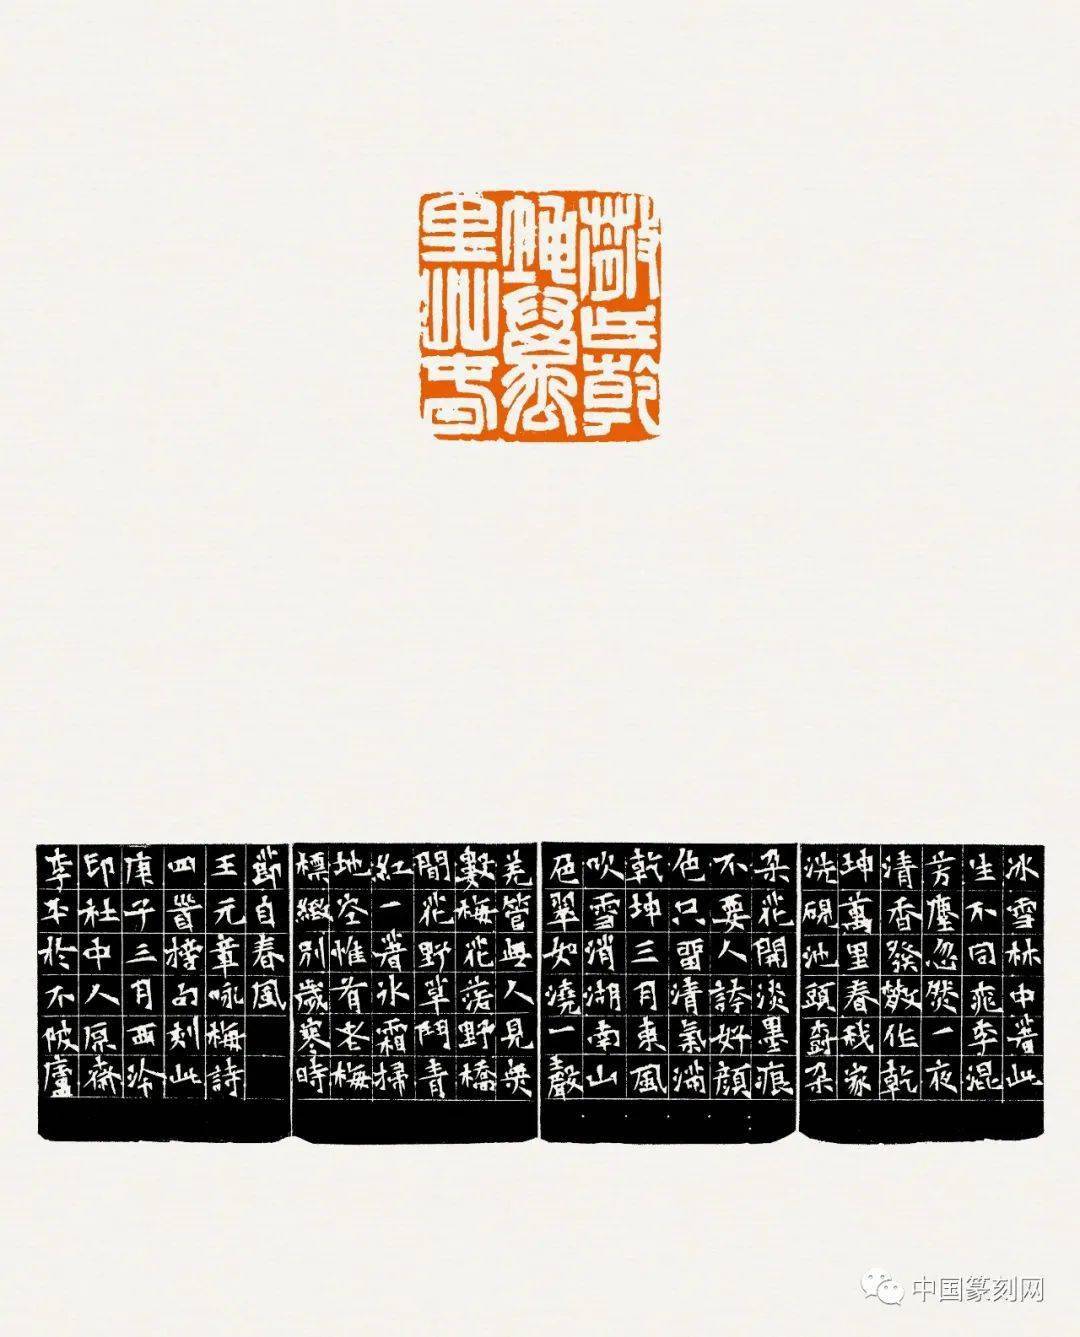 散作乾
坤萬
里春
冰雪林中著此
生不同桃李混
芳塵忽然一夜
清香發散作乾
坤萬里春我家
洗硯池頭樹朵
朵花開淡墨痕
不要人誇好顏
色只留清氣滿
乾坤三月東風
吹雪消湖南山
色翠如澆一聲
羌管無人見無
數梅花落野橋
間花野草鬥青
紅一著冰霜掃
地空惟有老梅
標緻別歲寒時
節自春風
王元章咏梅詩
四首句刻此
庚子三月西泠
印社中人原齋
李平於不陂廬
中国篆刻网